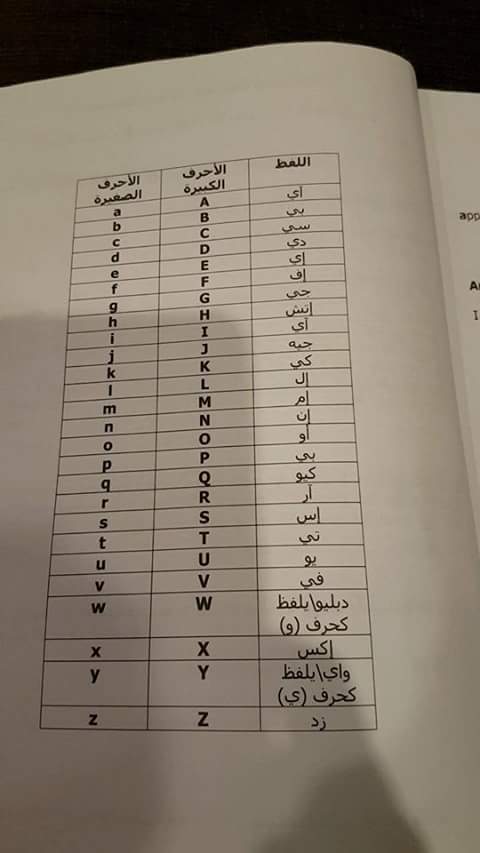 اللفظ الأحرف الكبيرة الأحرف الصغيرة
أي A a
بي B b
سي C c
دي D d
إي E e
إف F f
جي G g
إتش H h
آي I i
جيه J j
كي K k
إل L l
إم M m
إن N n
أو O o
بي P p
كيو Q q
آر R r
إس S s
تي T t
يو U u
في V v
دبليو\يلفظ W w
كحرف (و)
إكس X x
واي\يلفظ Y y
كحرف (ي)
زد Z z
app
I